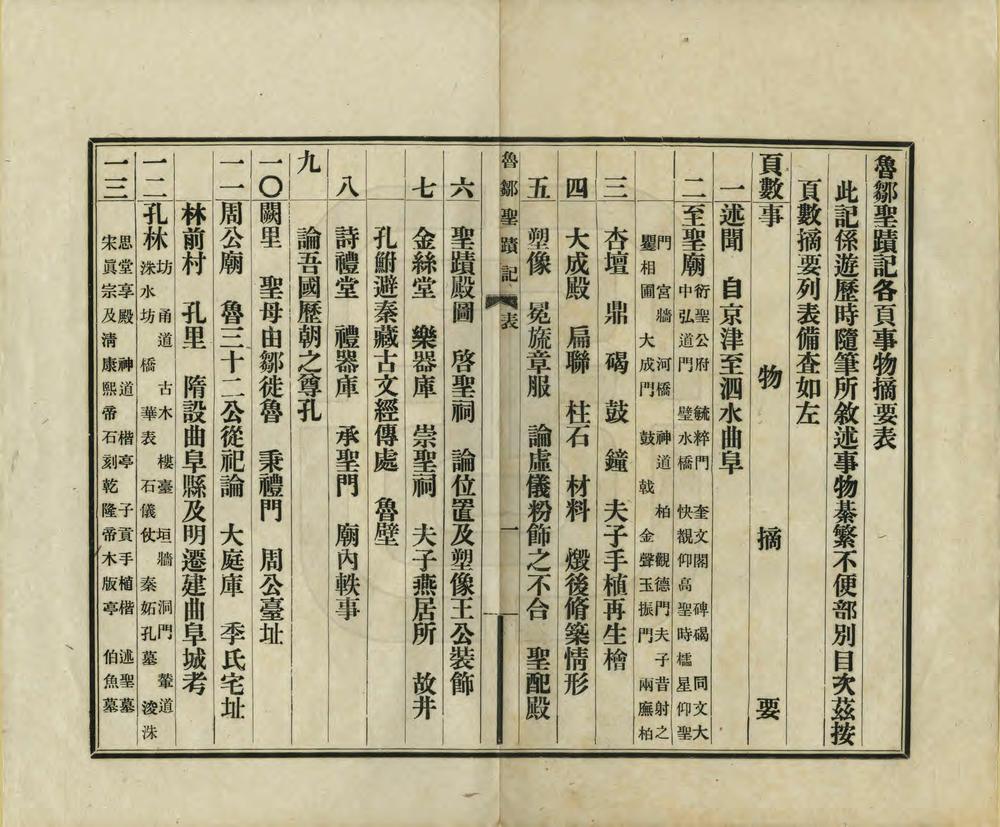 魯鄒聖蹟記各頁事物摘要表
此記係遊歷時隨筆所敘述事物綦繁不便部別目次茲按
頁數摘要列表備查如左
頁數事　物　摘　要
一　述聞　自京津至泗水曲阜
二　至聖廟　衍聖公府　毓粹門　奎文閣　碑碣　同文大
中弘道門　璧水橋　快覩仰高聖時櫺星仰聖
門　宮牆　河橋　神道　柏　觀德門夫子昔射之
矍相圃　大成門　鼓戟　金聲玉振門　兩廡柏
三　杏壇　鼎　碣　鼓　鐘　夫子手植再生檜
四　大成殿　扁聯　柱石　材料　燬後脩築情形
五　塑像　冕旒章服　論虛儀粉飾之不合　聖配殿
魯鄒聖蹟記　表　一
六　聖蹟殿圖　啓聖祠　論位置及塑像王公裝飾
七　金絲堂　樂器庫　崇聖祠　夫子燕居所　故井
孔鮒避秦藏古文經傳處　魯壁
八　詩禮堂　禮器庫　承聖門　廟內軼事
九　論吾國歷朝之尊孔
一〇　闕里　聖母由鄒徙魯　秉禮門　周公臺址
一一　周公廟　魯三十二公從祀論　大庭庫　季氏宅址
林前村　孔里　隋設曲阜縣及明遷建曲阜城考
一二　孔林　坊　甬道　古木　樓臺　垣牆　洞門　輦道
洙水坊　橋　華表　石儀仗　秦妬孔墓　濬洙
一三　思堂享殿　神道　楷亭　子貢手植楷　述聖墓
宋眞宗及淸康熙帝石刻乾隆帝木版亭　伯魚墓